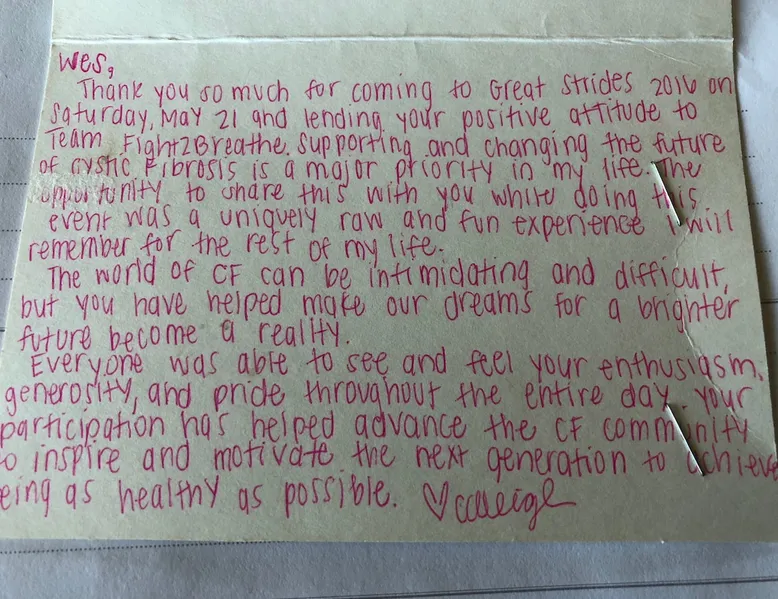 Wes,
Thank you so much for coming to Great Strides 2016 on
Saturday, May 21 and lending your positive attitude to
Team Fight2Breathe. Supporting and changing the future
of Cystic Fibrosis is a major priority in my life. The
opportunity to share this with you while doing this
event was a uniquely raw and fun experience i will
remember for the rest of my life.
The world of CF can be intimidating and difficult,
but you have helped make our dreams for a brighter
future become a reality.
Everyone was able to see and feel your enthusiasm,
generosity, and pride throughout the entire day. Your
participation has helped advance the CF community
to inspire and motivate the next generation to achieve
eing as healthy as possible. ♡